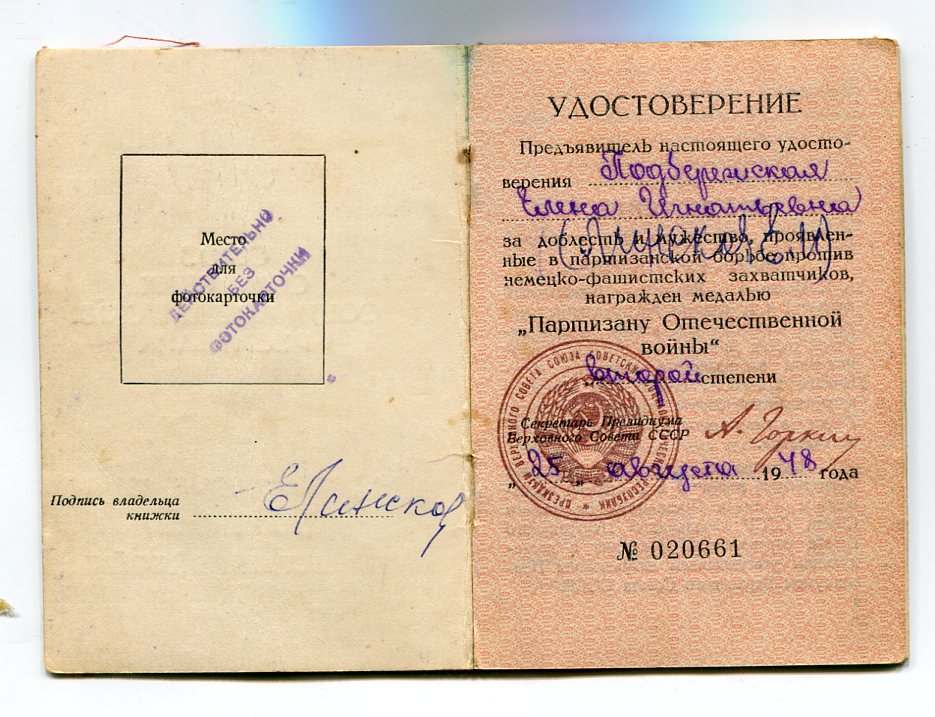 Место
для
фотокарточки
ДЕЙСТВИТЕЛЬНО
БЕЗ
ФОТОКАРТОЧКИ
Подпись владельца
книжки
УДОСТОВЕРЕНИЕ
Предъявитель настоящего удосто-
верения Подбережская
Елена Игнатьевна
за доблесть и мужество, проявлен-
ные в партизанской борьбе против
немецко-фашистских захватчиков,
награжден медалью
„Партизану Отечественной
войны“
второй степени
Секретарь Президиума
Верховного Совета СССР А. Горкин
„25„ августа 1948 года
№ 020661